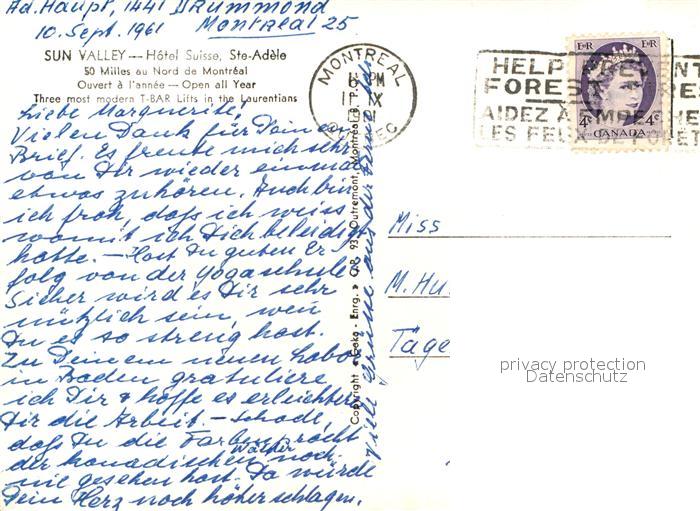 Ad. Haupt, 1441 Drummond
10. Sept. 1961 Montreal 25.
SUN VALLEY — Hôtel Suisse, Ste-Adèle
50 Milles au Nord de Montréal
Ouvert à l'année — Open all Year
Three most modern T-BAR Lifts in the Laurentians
Liebe Marguerite,
Vielen Dank für Deinen
Brief. Es freute mich sehr
von Dir wieder einmal
etwas zu hören. Auch bin
ich froh, dass ich weiss
womit ich Dich beleidigt
hatte. — Hast Du guten Er-
folg von der Yogaschule
Sicher wird es Dir sehr
nützlich sein, wen
Du es so streng hast.
Zu Deinem neuen Labor
in Baden gratuliere
ich Dir & hoffe es erleichtere
Dir die Arbeit. — Schade,
dass Du die Farbenpracht
der kanadischen Wälder noch
nie gesehen hast. Da würde
Dein Herz noch höher schlagen.
Viele Grüsse aus der
Copyright « Loka - Enrg. » C.P. 93, Outremont, Montréal 8, P.
MONTREAL
6 PM
11 IX
1961
QUEBEC
HELP PREVENT
FOREST FIRES
AIDEZ À EMPÊCHER
LES FEUX DE FORÊT
EIIR EIIR
4c 4c
CANADA
Miss
M. Hu
Täge
privacy protection
Datenschutz